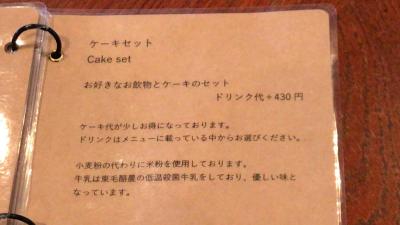 ケーキセット
Cake set
お好きなお飲物とケーキのセット
ドリンク代+430円
ケーキ代が少しお得になっております。
ドリンクはメニューに載っている中からお選びください。
小麦粉の代わりに米粉を使用しております。
牛乳は東毛酪農の低温殺菌牛乳をしており、優しい味と
なっています。